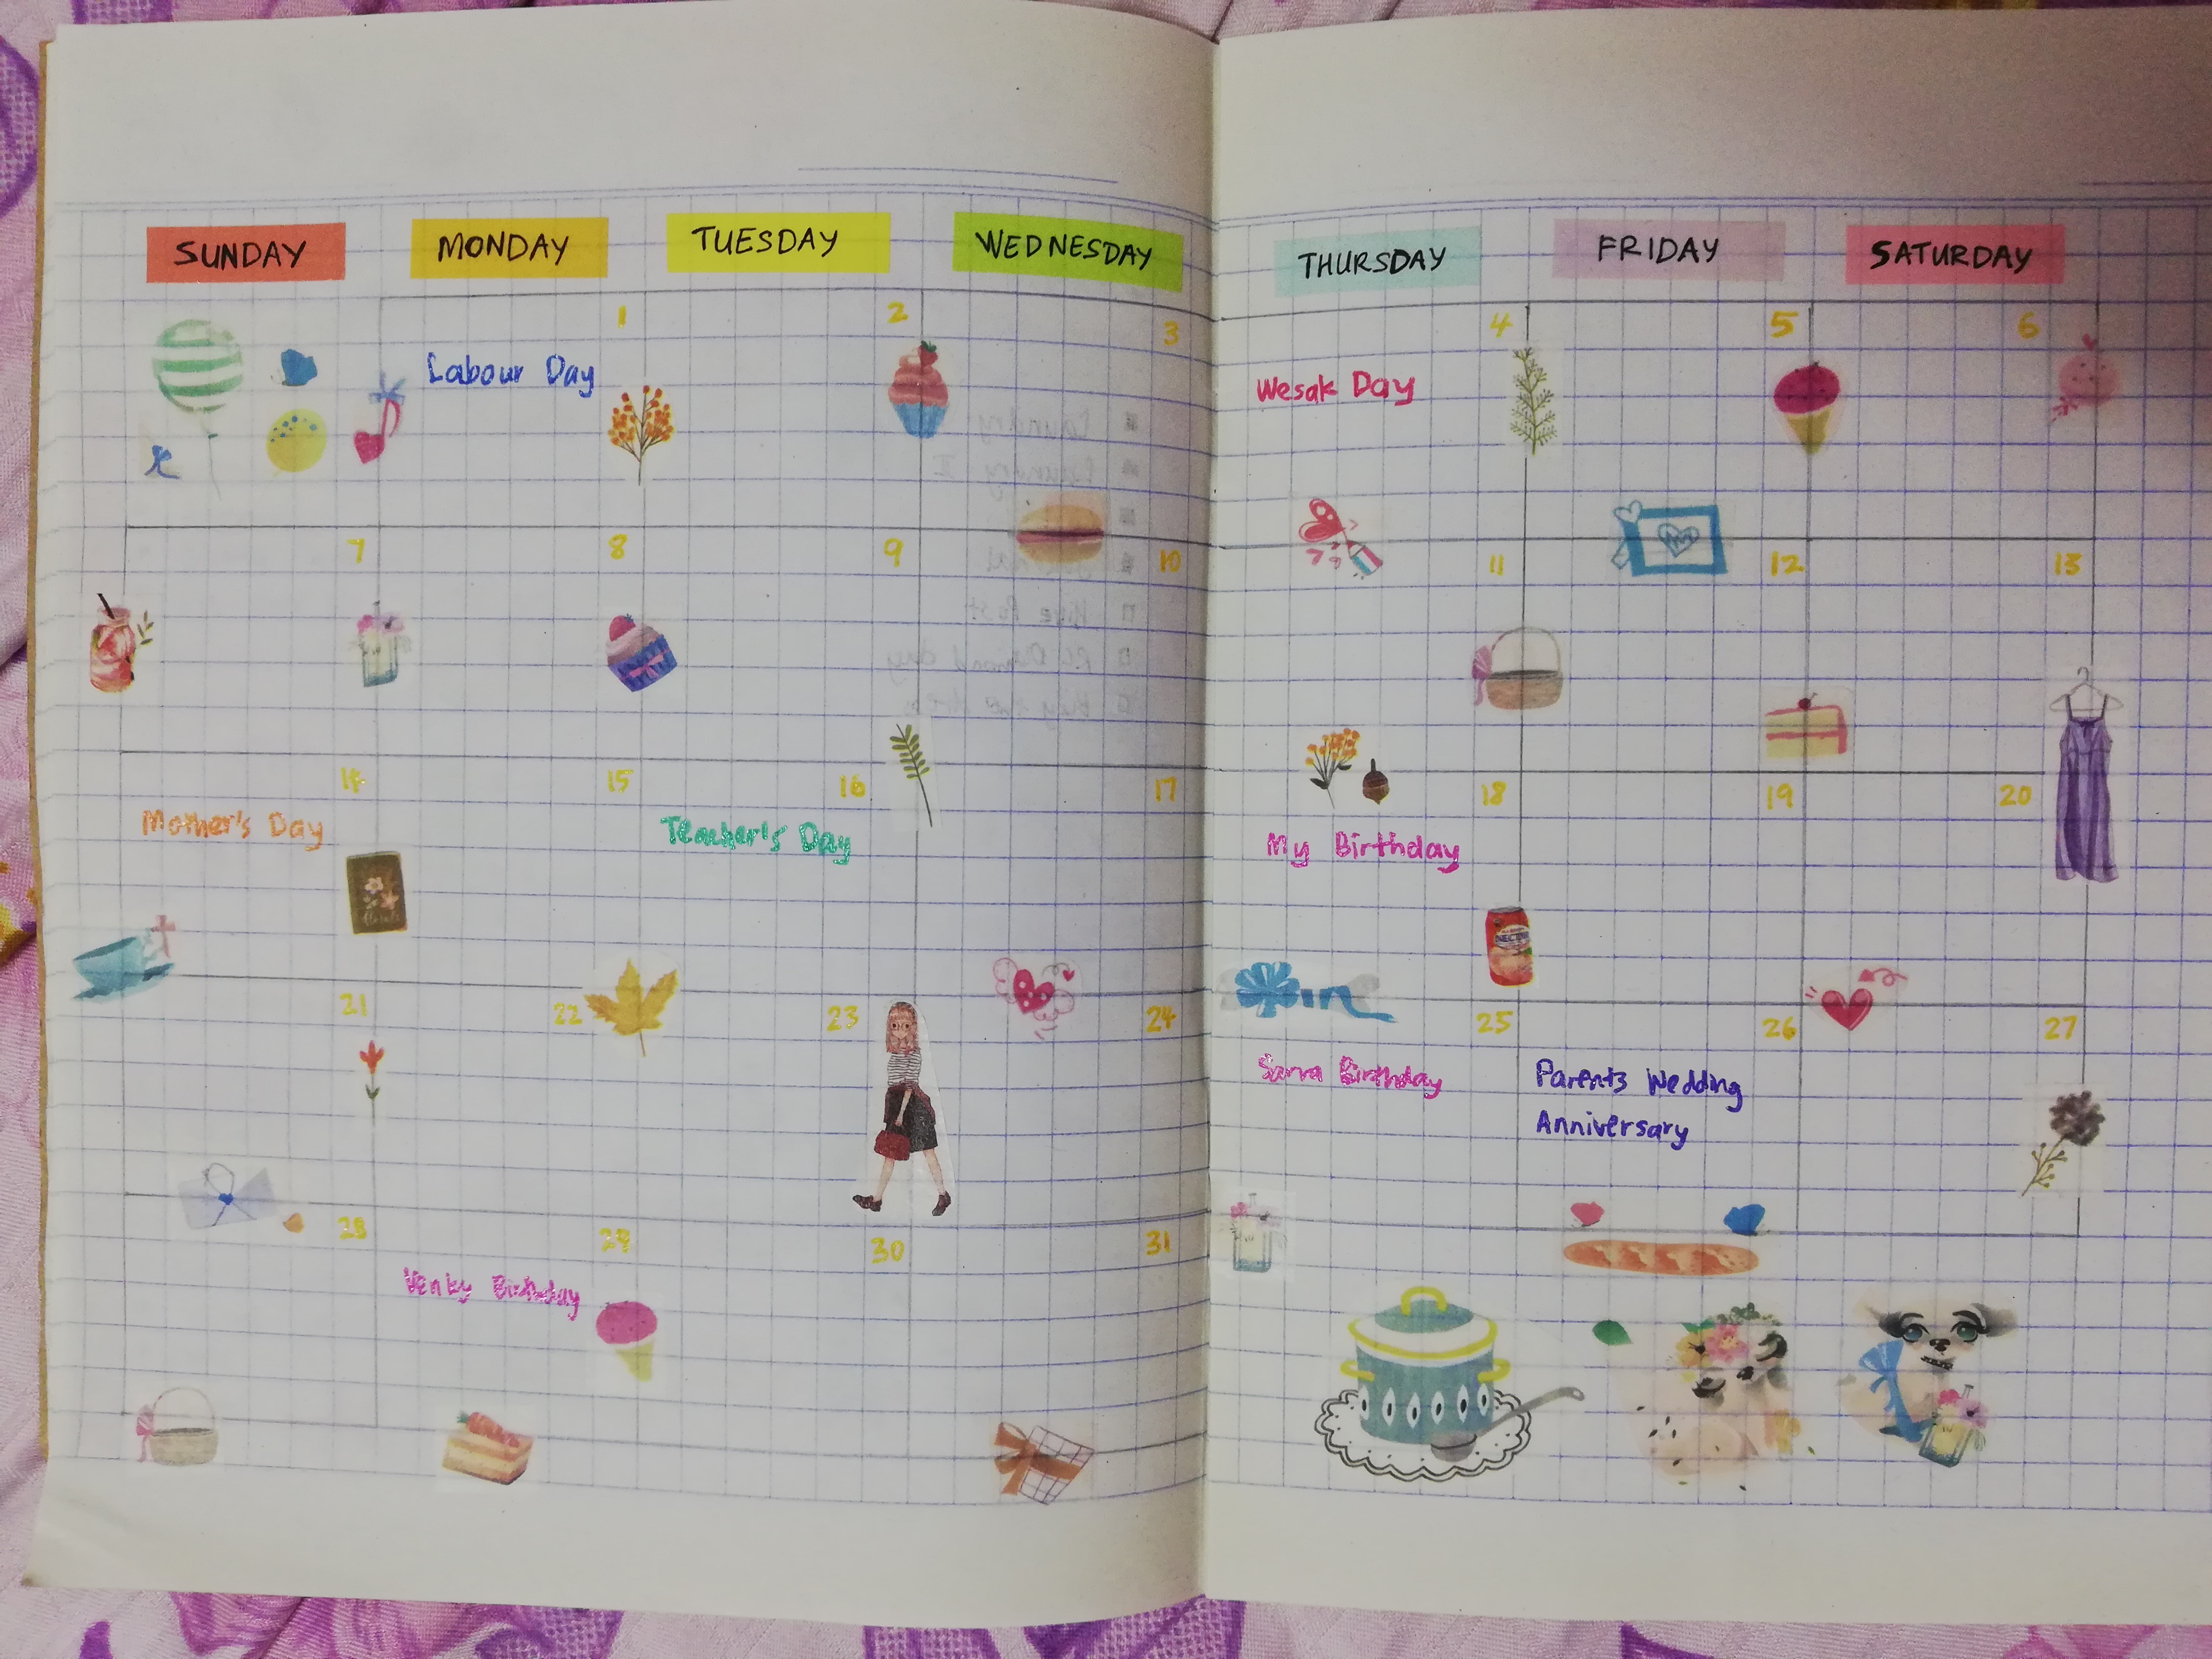 SUNDAY MONDAY TUESDAY WEDNESDAY THURSDAY FRIDAY SATURDAY
1 2 3 4 5 6
Labour Day
Wesak Day
7 8 9 10 11 12 13
14 15 16 17 18 19 20
Mother's Day
Teacher's Day
My Birthday
NECTAR
21 22 23 24 25 26 27
Birthday
Parents Wedding
Anniversary
28 29 30 31
Venky Birthday